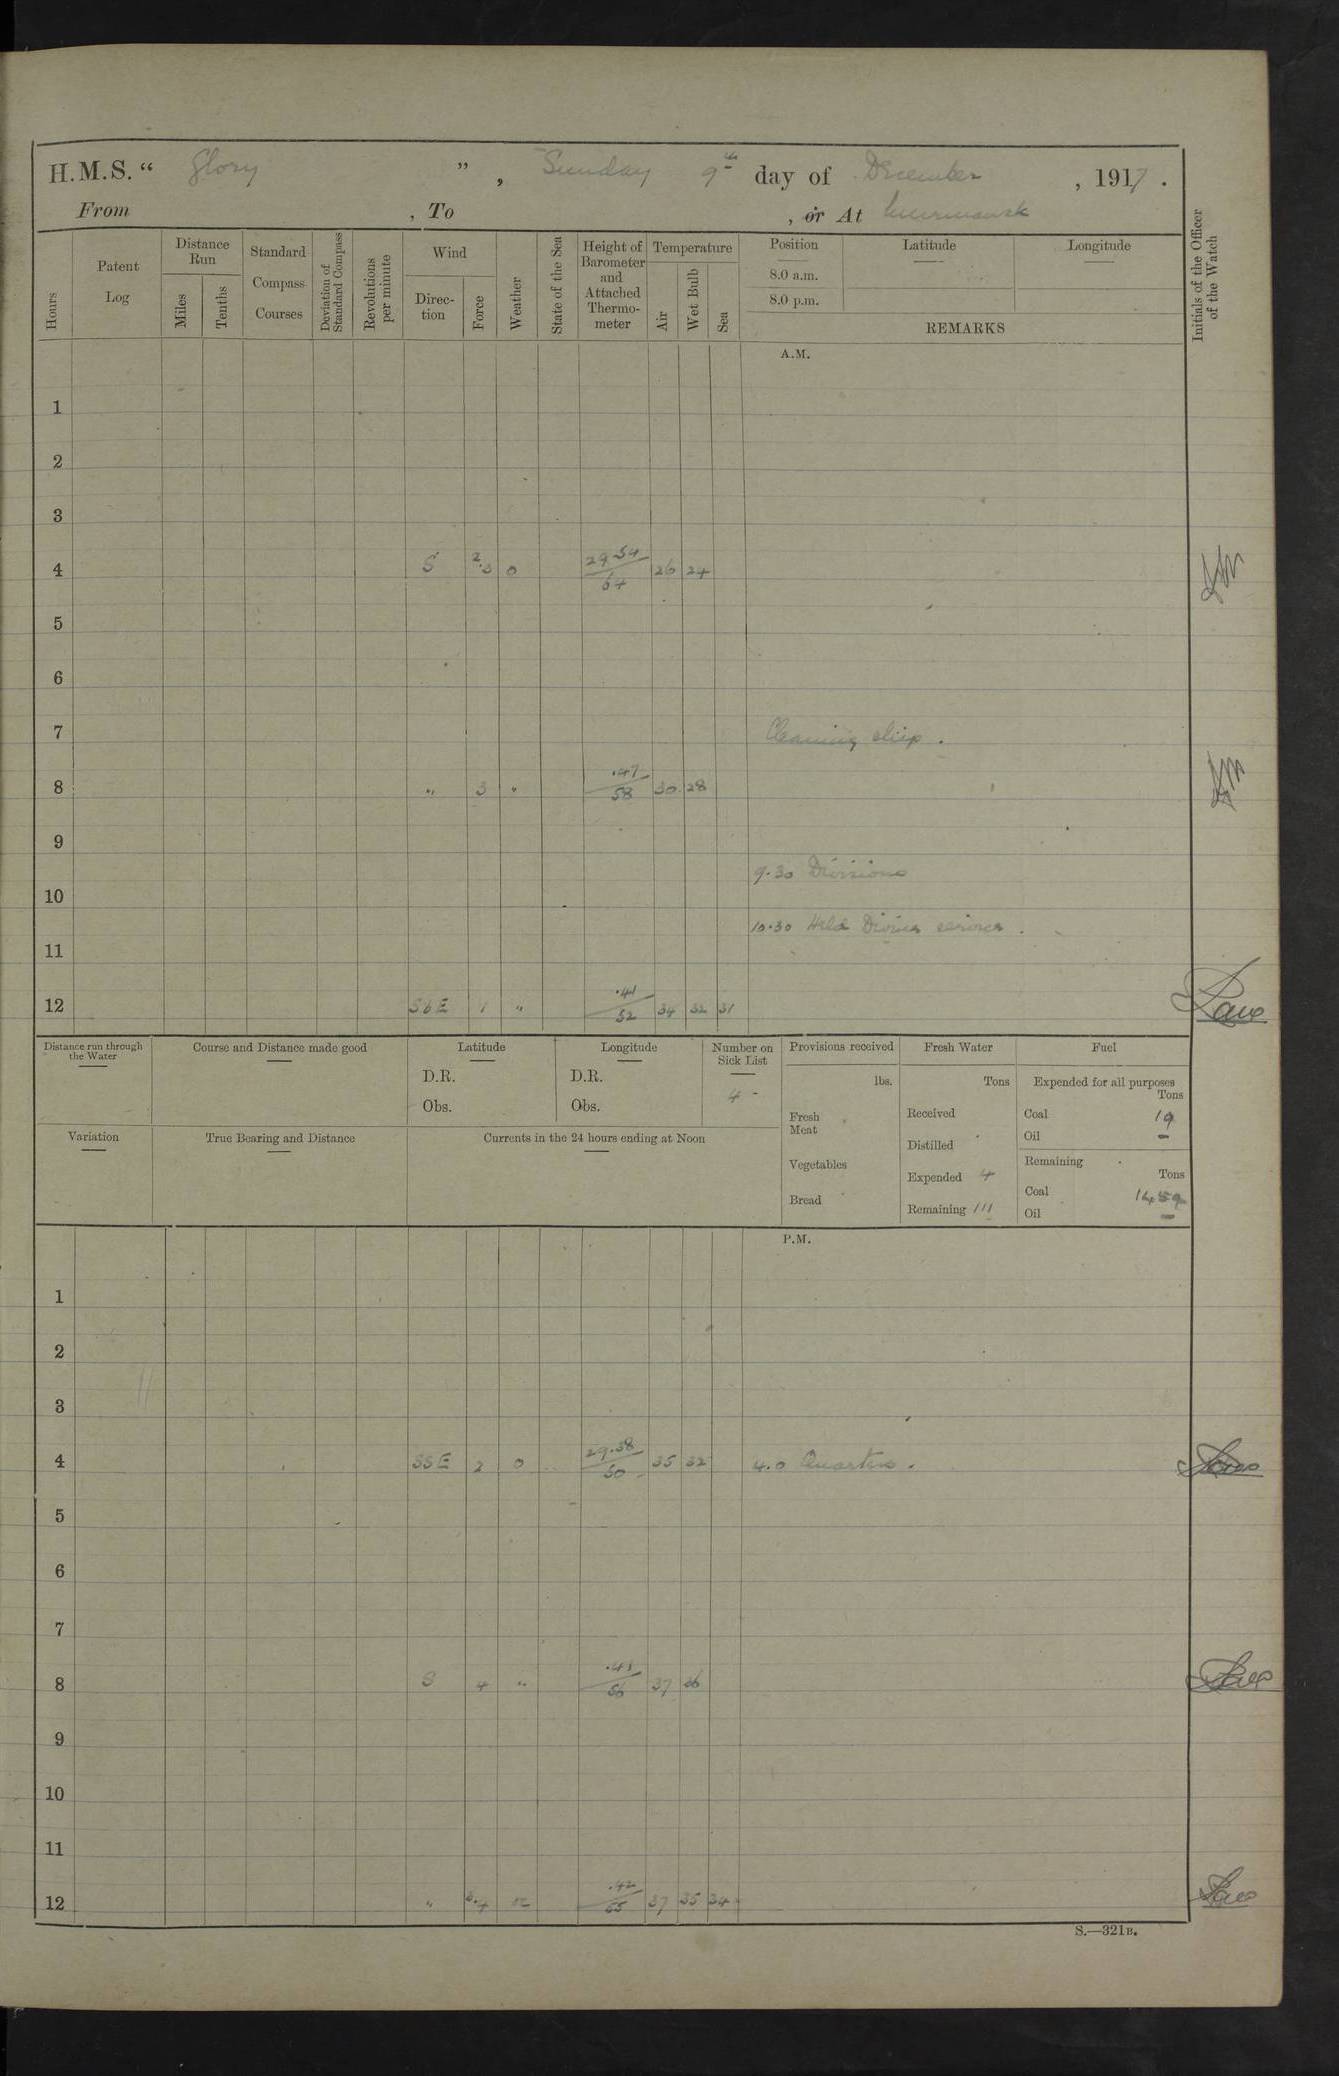 H.M.S. “ Glory ” , Sunday 9th day of December , 1917 .
From , To , or At Murmansk
Hours
Patent Log
Distance Run
Miles
Tenths
Standard Compass Courses
Deviation of Standard Compass
Revolutions per minute
Wind
Direc-tion
Force
Weather
State of the Sea
Height of Barometer and Attached Thermo-meter
Temperature
Air
Wet Bulb
Sea
Position
8.0 a.m.
8.0 p.m.
Latitude
Longitude
REMARKS
Initials of the Officer of the Watch
A.M.
1
2
3
4 S 2.3 o 29.54/64 26 24
5
6
7 Cleaning ship.
8 " 3 " .47/58 30 28
9
9.30 Divisions
10
10.30 Held Divine service.
11
12 SbE 1 " .41/52 34 32 31
Distance run through the Water
Course and Distance made good
Latitude
D.R.
Obs.
Longitude
D.R.
Obs.
Number on Sick List
4 -
Variation
True Bearing and Distance
Currents in the 24 hours ending at Noon
Provisions received
lbs.
Fresh Meat
Vegetables
Bread
Fresh Water
Tons
Received
Distilled
Expended 4
Remaining 111
Fuel
Expended for all purposes
Tons
Coal 19
Oil -
Remaining
Tons
Coal 1459
Oil -
P.M.
1
2
3
4 SSE 2 o 29.38/50 35 32 4.0 Quarters.
5
6
7
8 S 4 " .41/56 37 36
9
10
11
12 " 3.4 .42/55 37 35 34
S.—321B.